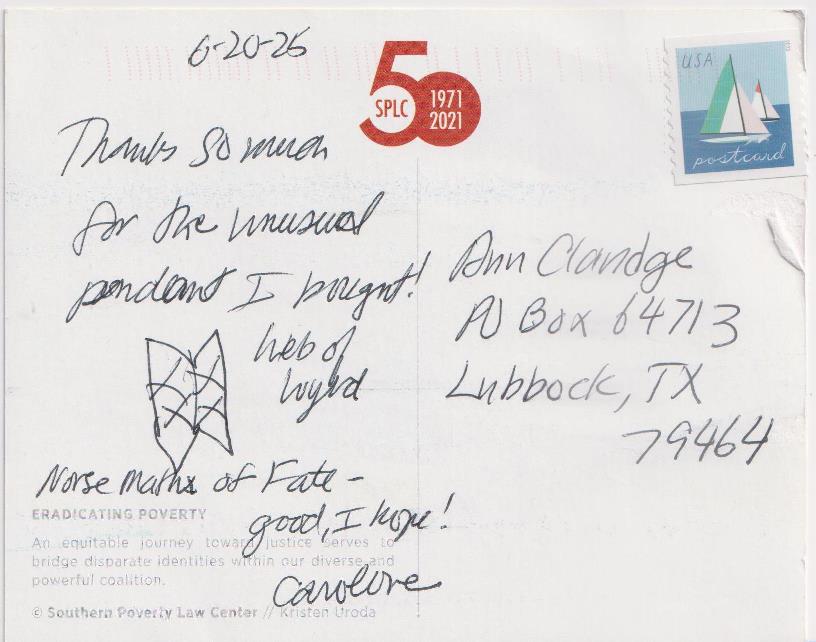 6-20-25
50
SPLC
1971
2021
USA
postcard
Thanks so much
for the unusual
pendant I bought!
Web of
Wyrd
Norse of Fate -
good, I hope!
Caroline
Ann Clandge
PO Box 64713
Lubbock, TX
79464
ERADICATING POVERTY
An equitable journey toward justice serves to
bridge disparate identities within our diverse and
powerful coalition.
© Southern Poverty Law Center // Kristen Uroda